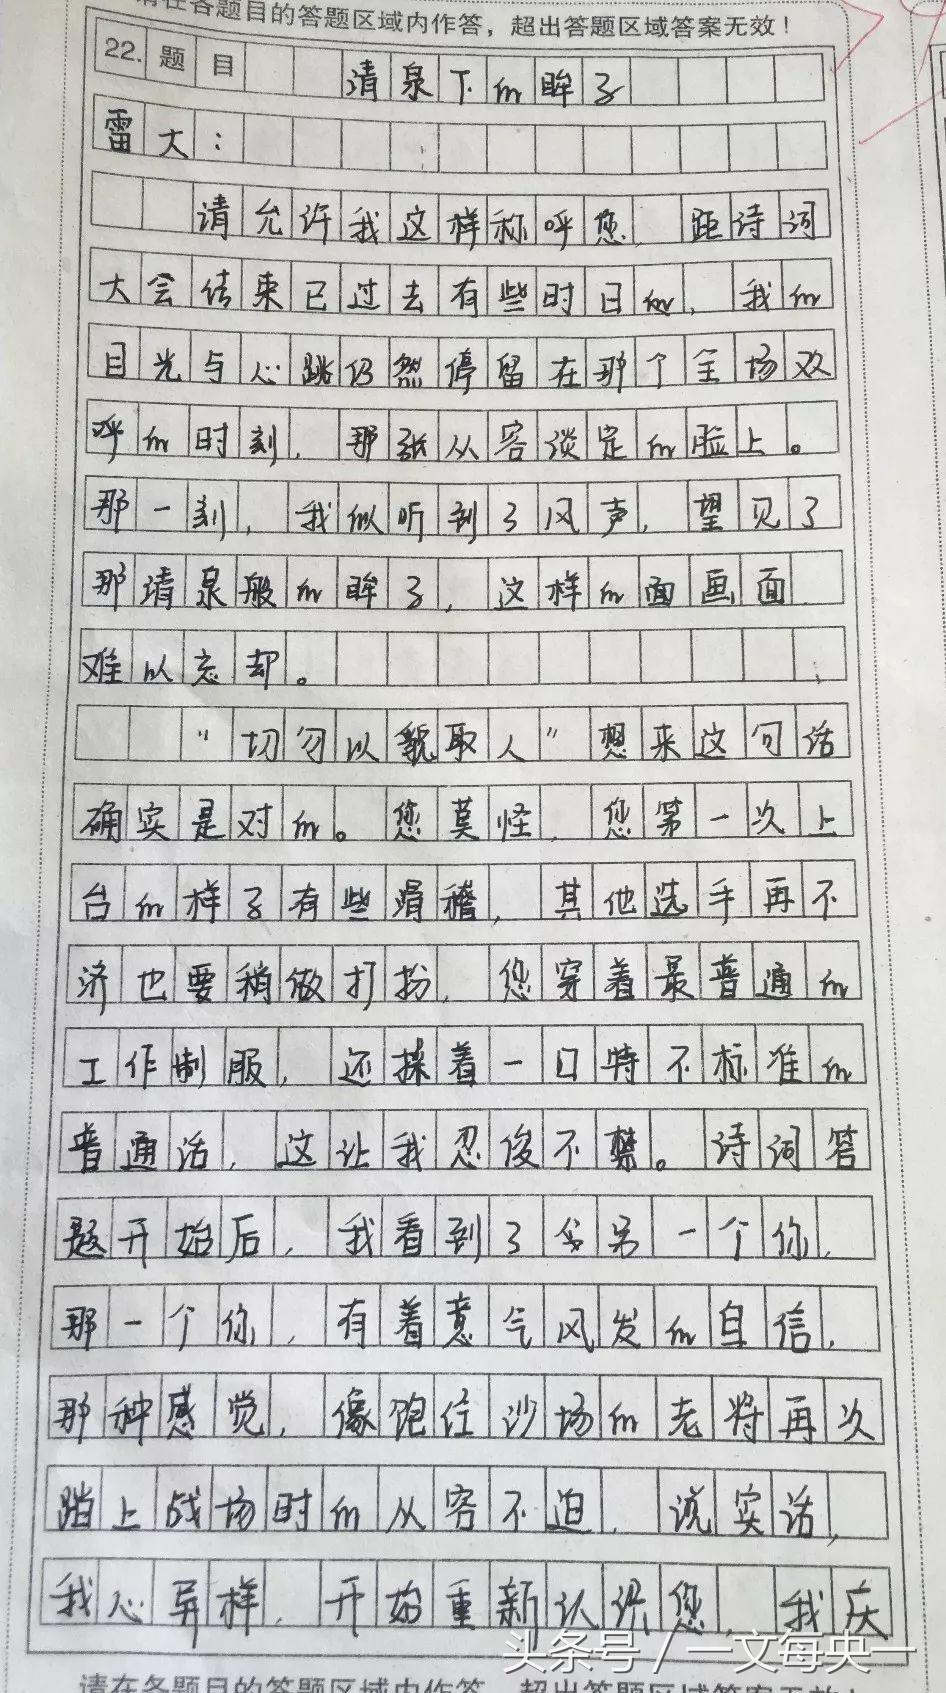 请在各题目的答题区域内作答，超出答题区域答案无效！
22. 题目 清泉下的眸子
雷大：
请允许我这样称呼您，距诗词
大会结束已过去有些时日的，我的
目光与心跳仍然停留在那个全场欢
呼的时刻，那张从容淡定的脸上。
那一刻，我似听到了风声，望见了
那清泉般的眸子，这样的面画面
难以忘却。
“切勿以貌取人”想来这句话
确实是对的。您莫怪，您第一次上
台的样子有些滑稽，其他选手再不
济也要稍做打扮，您穿着最普通的
工作制服，还操着一口特不标准的
普通话，这让我忍俊不禁。诗词答
题开始后，我看到了另一个你，
那一个你，有着意气风发的自信，
那种感觉，像饱经沙场的老将再次
踏上战场时的从容不迫，说实话，
我心异样，开始重新认识您，我庆
头条号／一文每央一
请在各题目的答题区域内作答，超出答题区域答案无效！